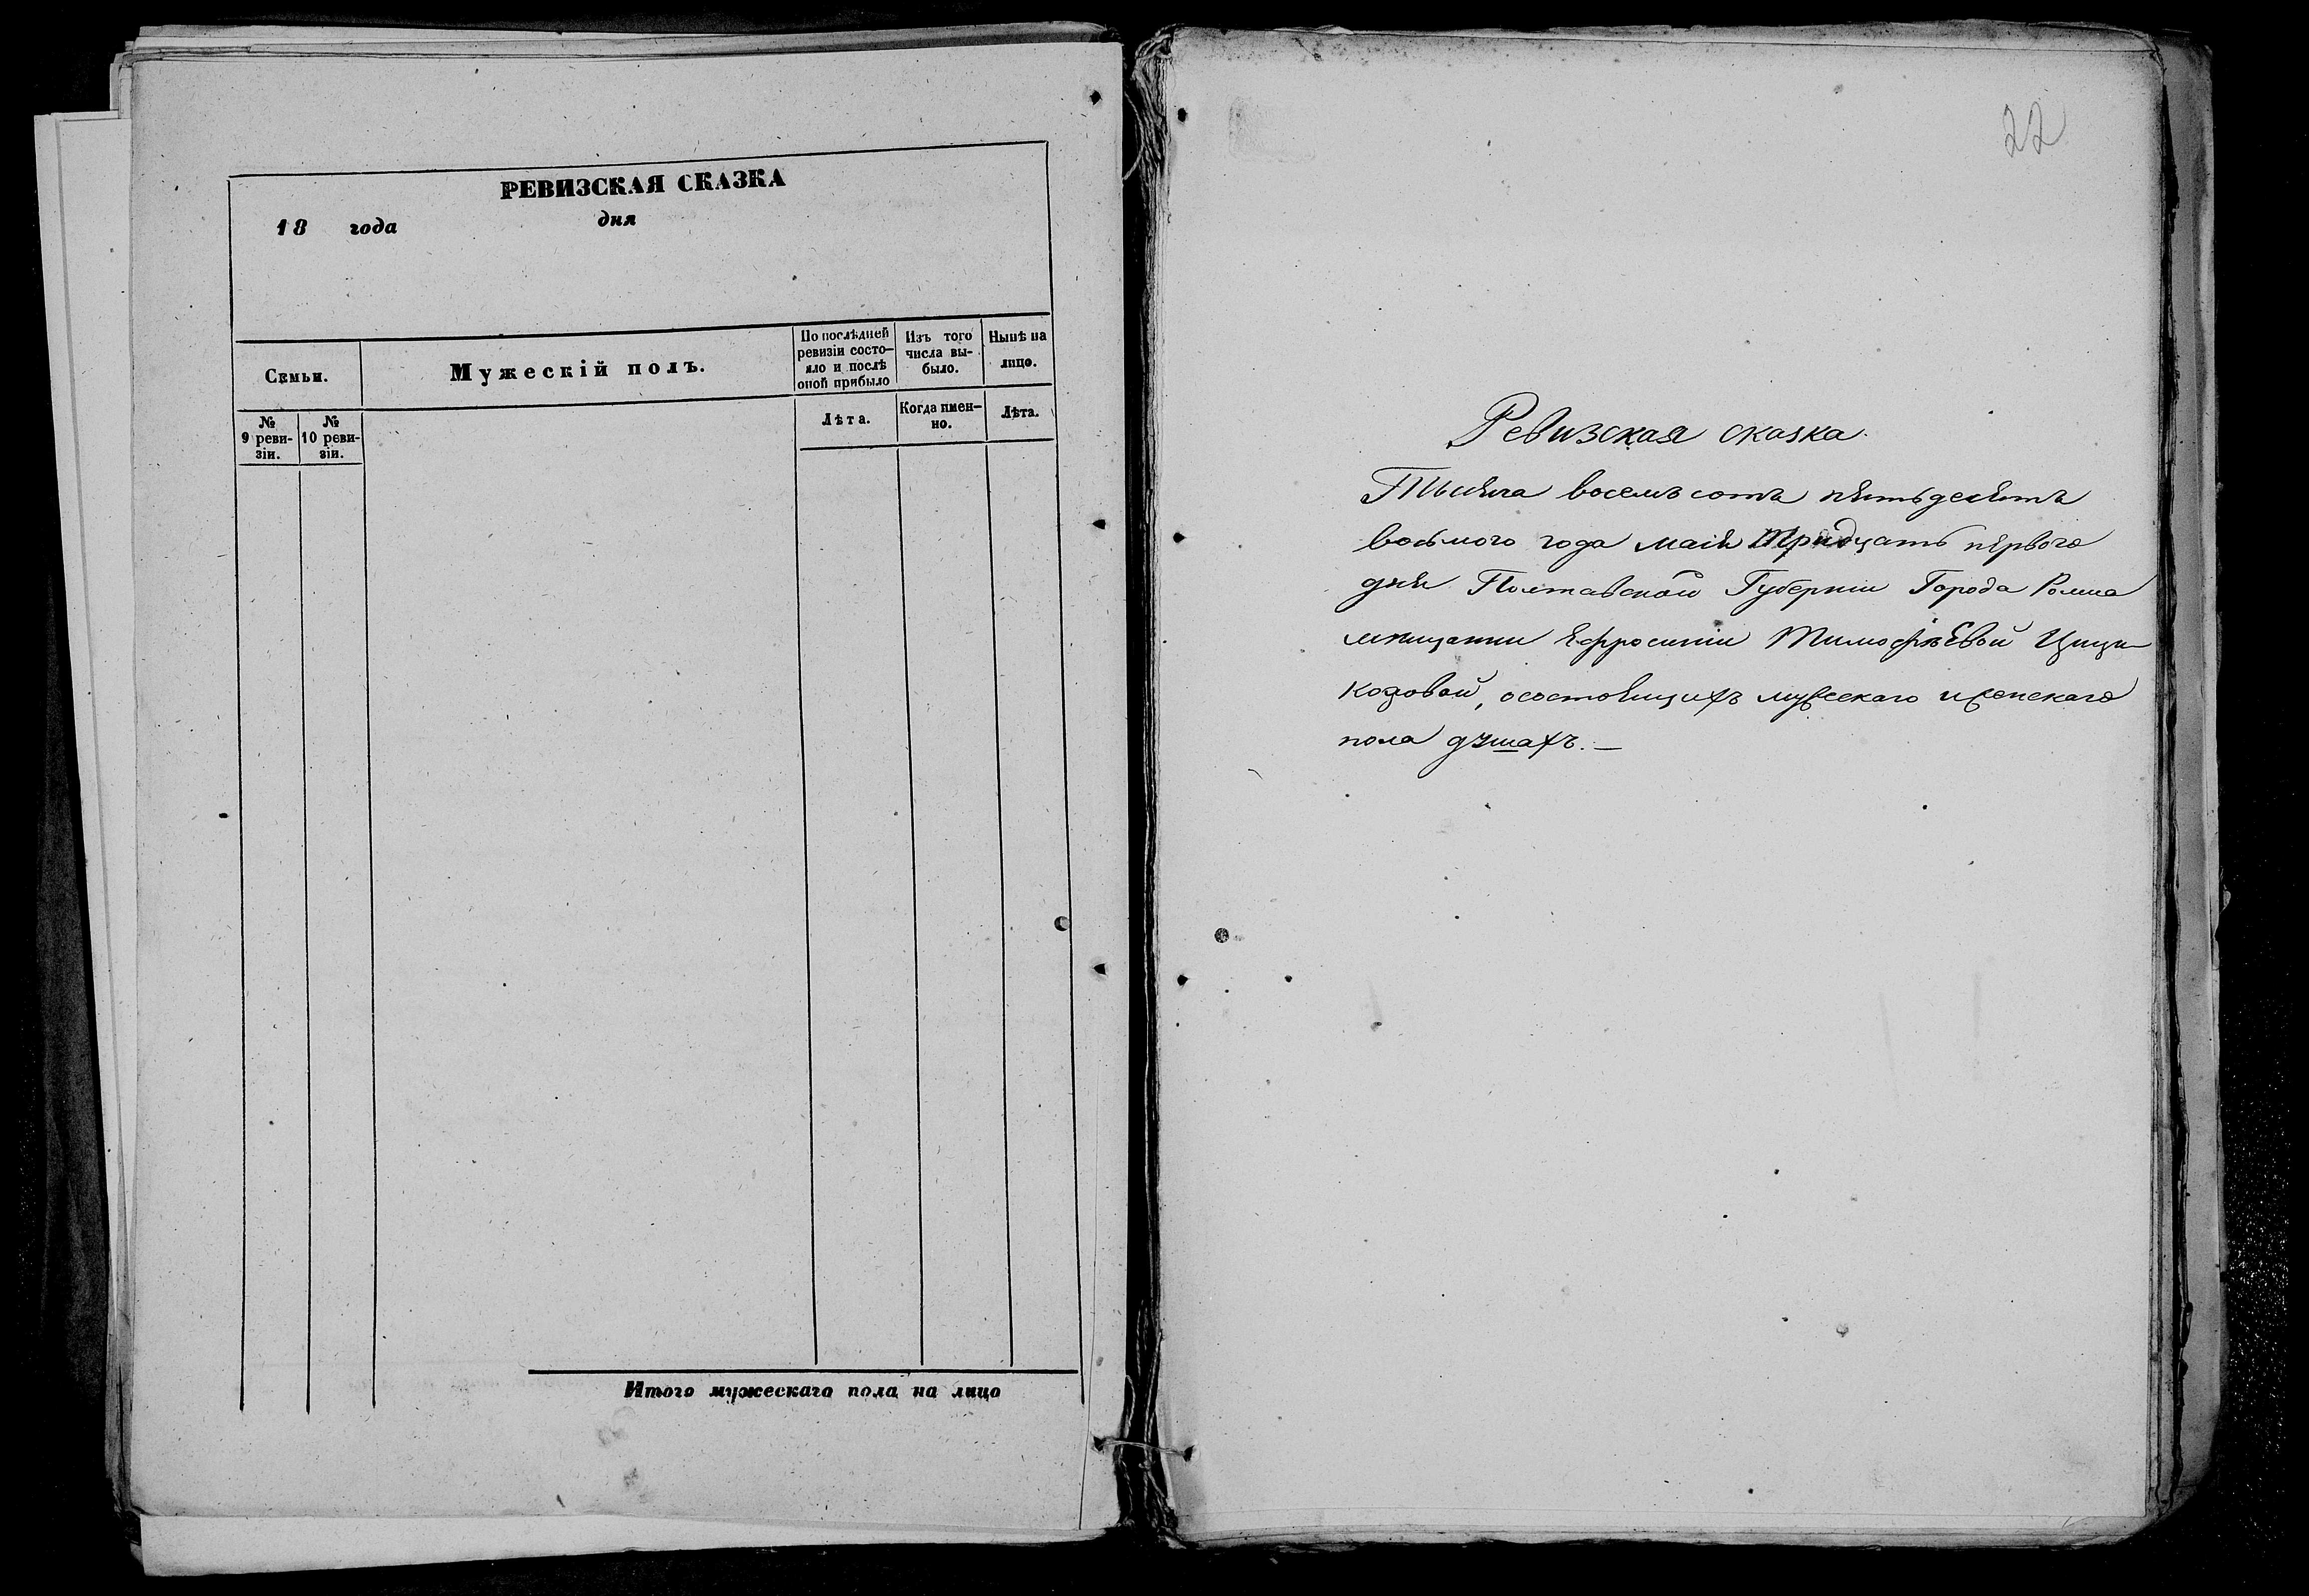 РЕВИЗСКАЯ СКАЗКА
18 года дня
Семьи.
Мужескій полъ.
По послѣдней
ревизіи состо-
яло и послѣ
оной прибыло
Изъ того
числа вы-
было.
Нынѣ на
лицо.
№
9 реви-
зіи.
№
10 реви-
зіи.
Лѣта.
Когда имен-
но.
Лѣта.
Итого мужескаго пола на лицо
22
Ревизская сказка.
Тысяча восемъ сотъ пятьдесятъ
восьмого года маія Тридцать первого
дня Полтавской Губерніи Города Ромна
мѣщанки Ефросиніи Тимофѣевой Цици-
, осостоящихъ мужескаго иженскаго
пола душахъ. —